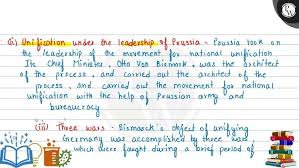 (ii) Unification under the leadership of Prussia - Prussia took on
the leadership of the movement for national unification
Its Chief Minister, Otto Von Bismark, was the architect
of the process, and carried out the architect of the
process, and carried out the movement for national
unification with the help of Prussian army and
bureaucracy
(iii) Three wars - Bismarck's object of unifying
Germany was accomplished by three wars
which were faught during a brief period of